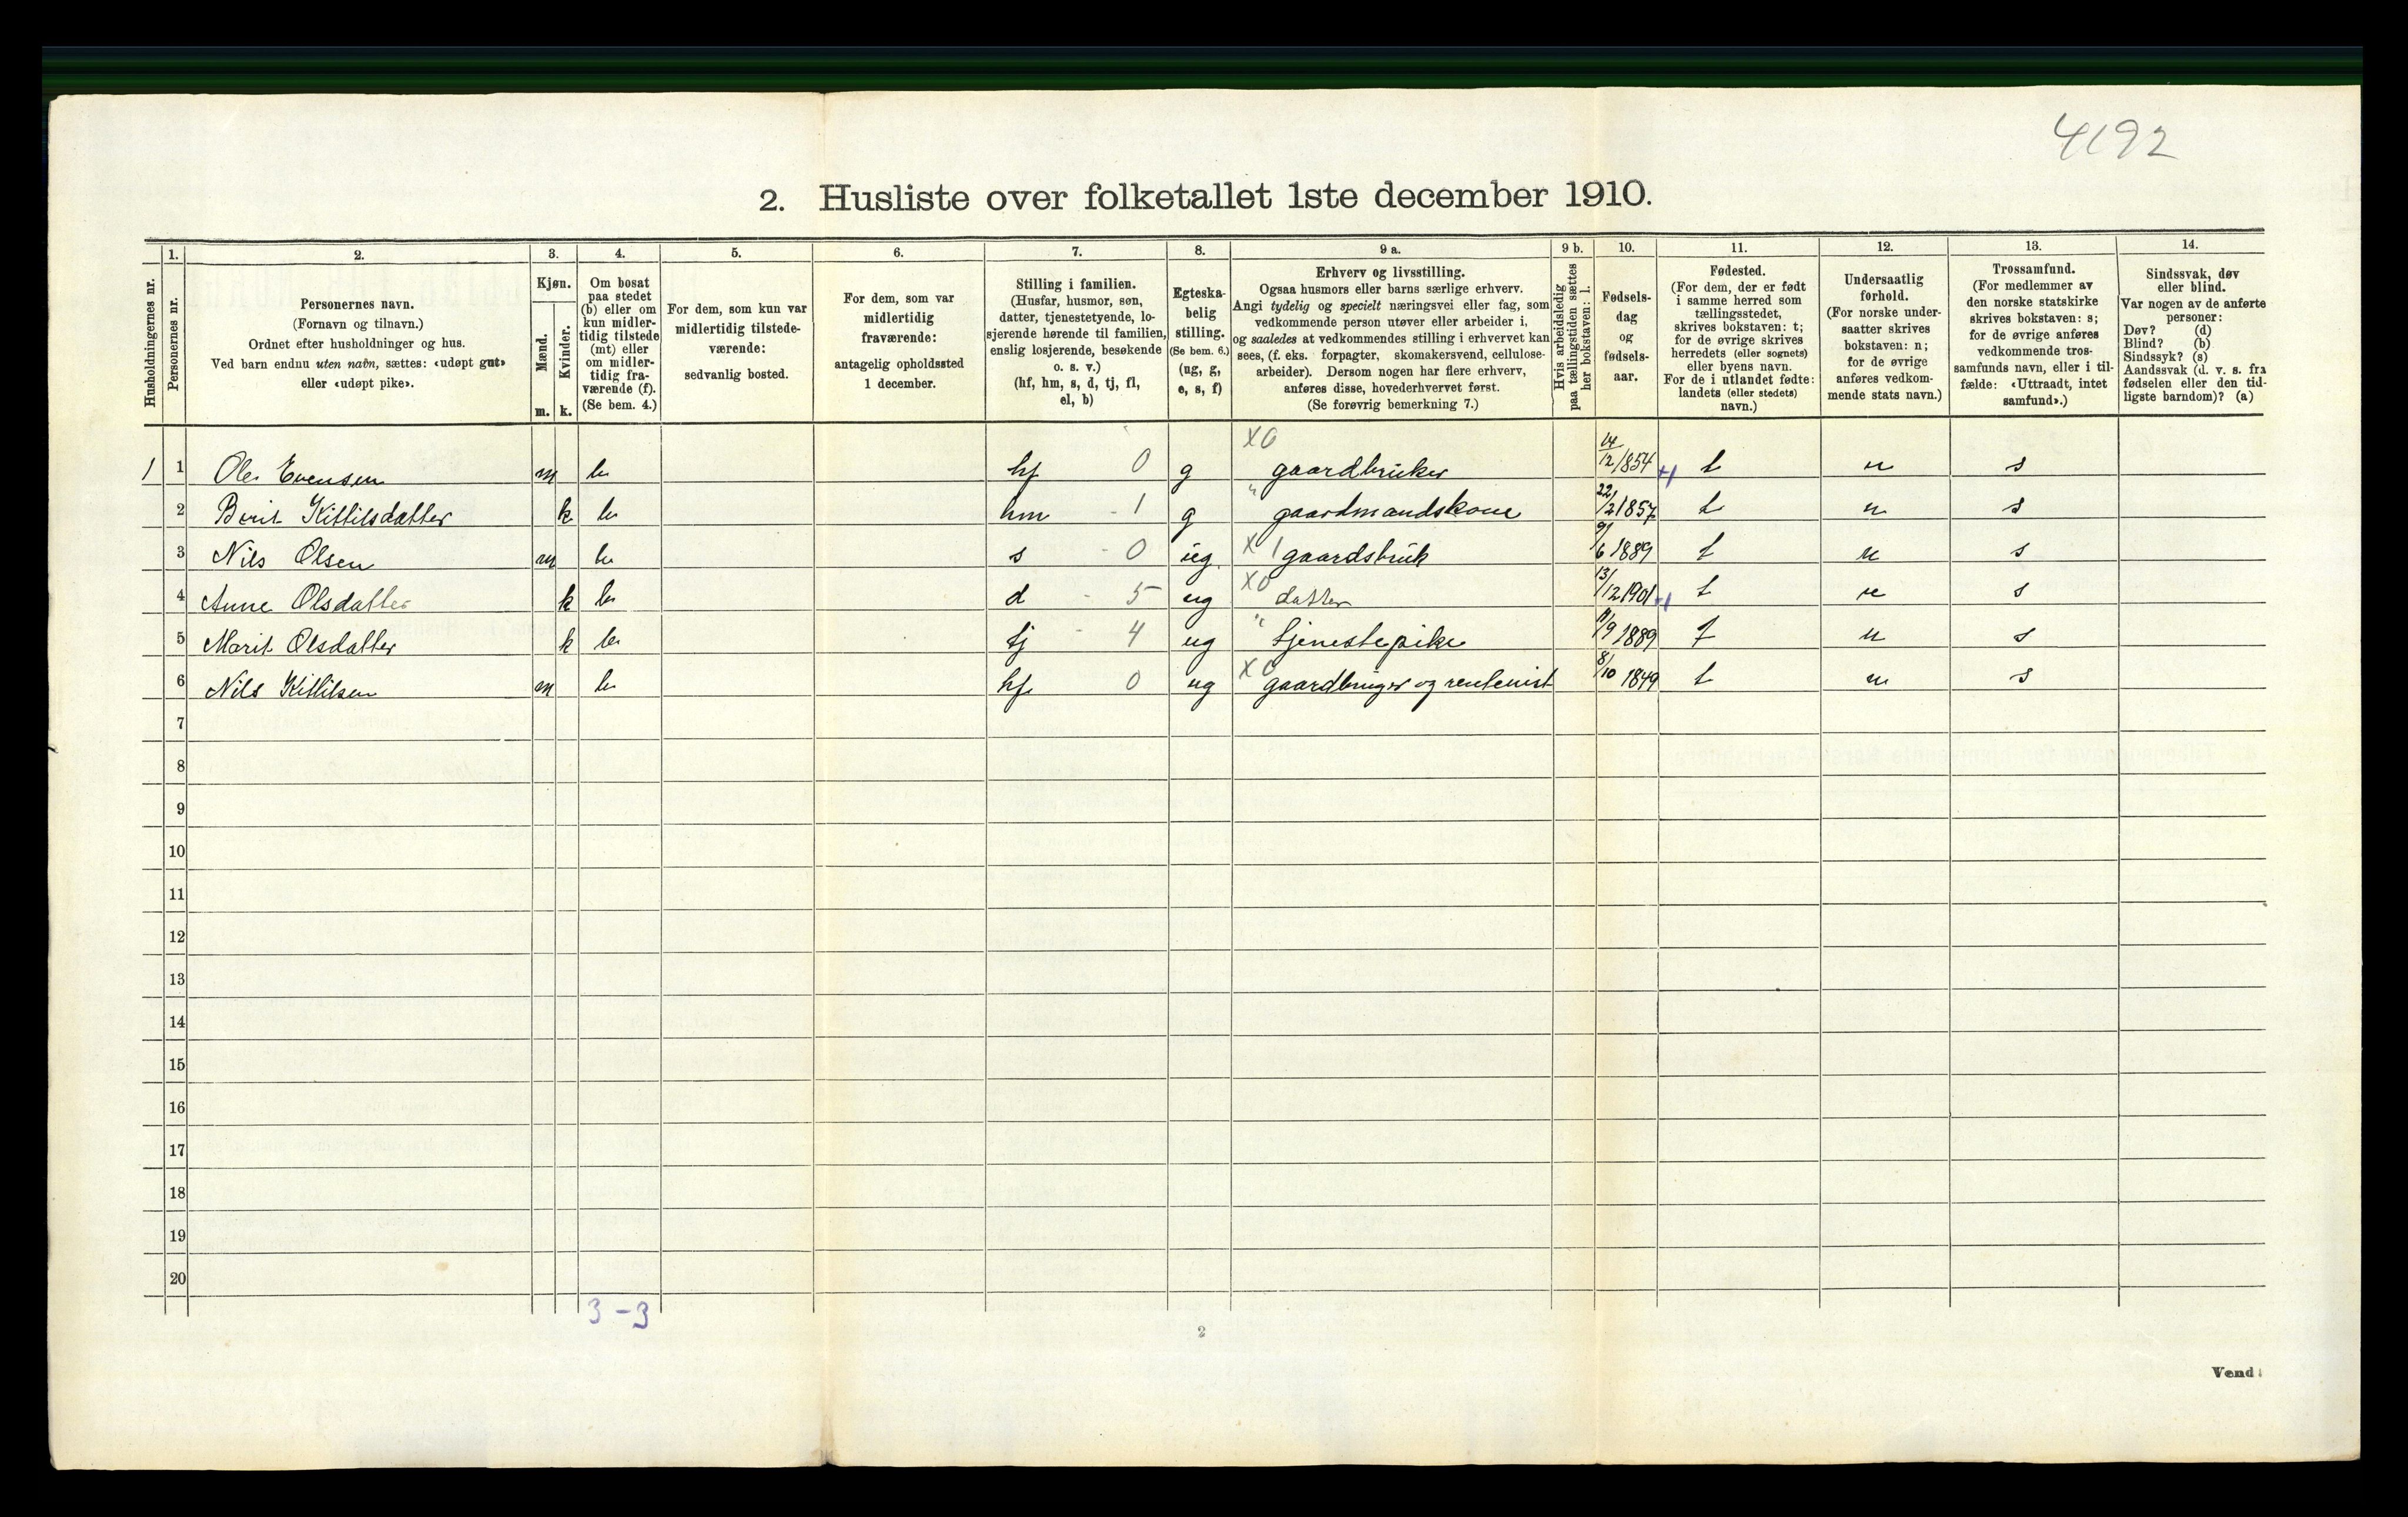 4192
2. Husliste over folketallet 1ste december 1910.
Husholdningernes nr.
1.
Personernes nr.
2.
Personernes navn.
(Fornavn og tilnavn.)
Ordnet efter husholdninger og hus.
Ved barn endnu uten navn, sættes: «udøpt gut»
eller «udøpt pike».
3.
Kjøn.
Mænd.
Kvinder.
m. k.
4.
Om bosat
paa stedet
(b) eller om
kun midler-
tidig tilstede
(mt) eller
om midler-
tidig fra-
værende (f).
(Se bem. 4.)
5.
For dem, som kun var
midlertidig tilstede-
værende:
sedvanlig bosted.
6.
For dem, som var
midlertidig
fraværende:
antagelig opholdssted
1 december.
7.
Stilling i familien.
(Husfar, husmor, søn,
datter, tjenestetyende, lo-
sjerende hørende til familien,
enslig losjerende, besøkende
o. s. v.)
(hf, hm, s, d, tj, fl,
el, b)
8.
Egteska-
belig
stilling.
(Se bem. 6.)
(ug, g,
e, s, f)
9 a.
Erhverv og livsstilling.
Ogsaa husmors eller barns særlige erhverv.
Angi tydelig og specielt næringsvei eller fag, som
vedkommende person utøver eller arbeider i,
og saaledes at vedkommendes stilling i erhvervet kan
sees, (f. eks. forpagter, skomakersvend, cellulose-
arbeider). Dersom nogen har flere erhverv,
anføres disse, hovederhvervet først.
(Se forøvrig bemerkning 7.)
9 b.
Hvis arbeidsledig
paa tællingstiden sættes
her bokstaven: l.
10.
Fødsels-
dag
og
fødsels-
aar.
11.
Fødested.
(For dem, der er født
i samme herred som
tællingsstedet,
skrives bokstaven: t;
for de øvrige skrives
herredets (eller sognets)
eller byens navn.
For de i utlandet fødte:
landets (eller stedets)
navn.)
12.
Undersaatlig
forhold.
(For norske under-
saatter skrives
bokstaven: n;
for de øvrige
anføres vedkom-
mende stats navn.)
13.
Trossamfund.
(For medlemmer av
den norske statskirke
skrives bokstaven: s;
for de øvrige anføres
vedkommende tros-
samfunds navn, eller i til-
fælde: «Uttraadt, intet
samfund».)
14.
Sindssvak, døv
eller blind.
Var nogen av de anførte
personer:
Døv? (d)
Blind? (b)
Sindssyk? (s)
Aandssvak (d. v. s. fra
fødselen eller den tid-
ligste barndom)? (a)
1 1 Ole Evensen m b hf 0 g X0 gaardbruker 14/12 1854 +1 t n s
2 Berit Kittilsdatter k b hm - 1 g " gaardmandskone 22/2 1857 t n s
3 Nils Olsen m b s - 0 ug X 1 gaardsbruk 9/6 1889 t n s
4 Anne Olsdatter k b d - 5 ug X0 datter 13/12 1901 +1 t n s
5 Marit Olsdatter k b tj - 4 ug " tjenestepike 11/9 1889 t n s
6 Nils Kittilsen m b hf 0 ug X0 gaardbruger og rentenist 8/10 1849 t n s
7
8
9
10
11
12
13
14
15
16
17
18
19
20
3 - 3
2
Vend